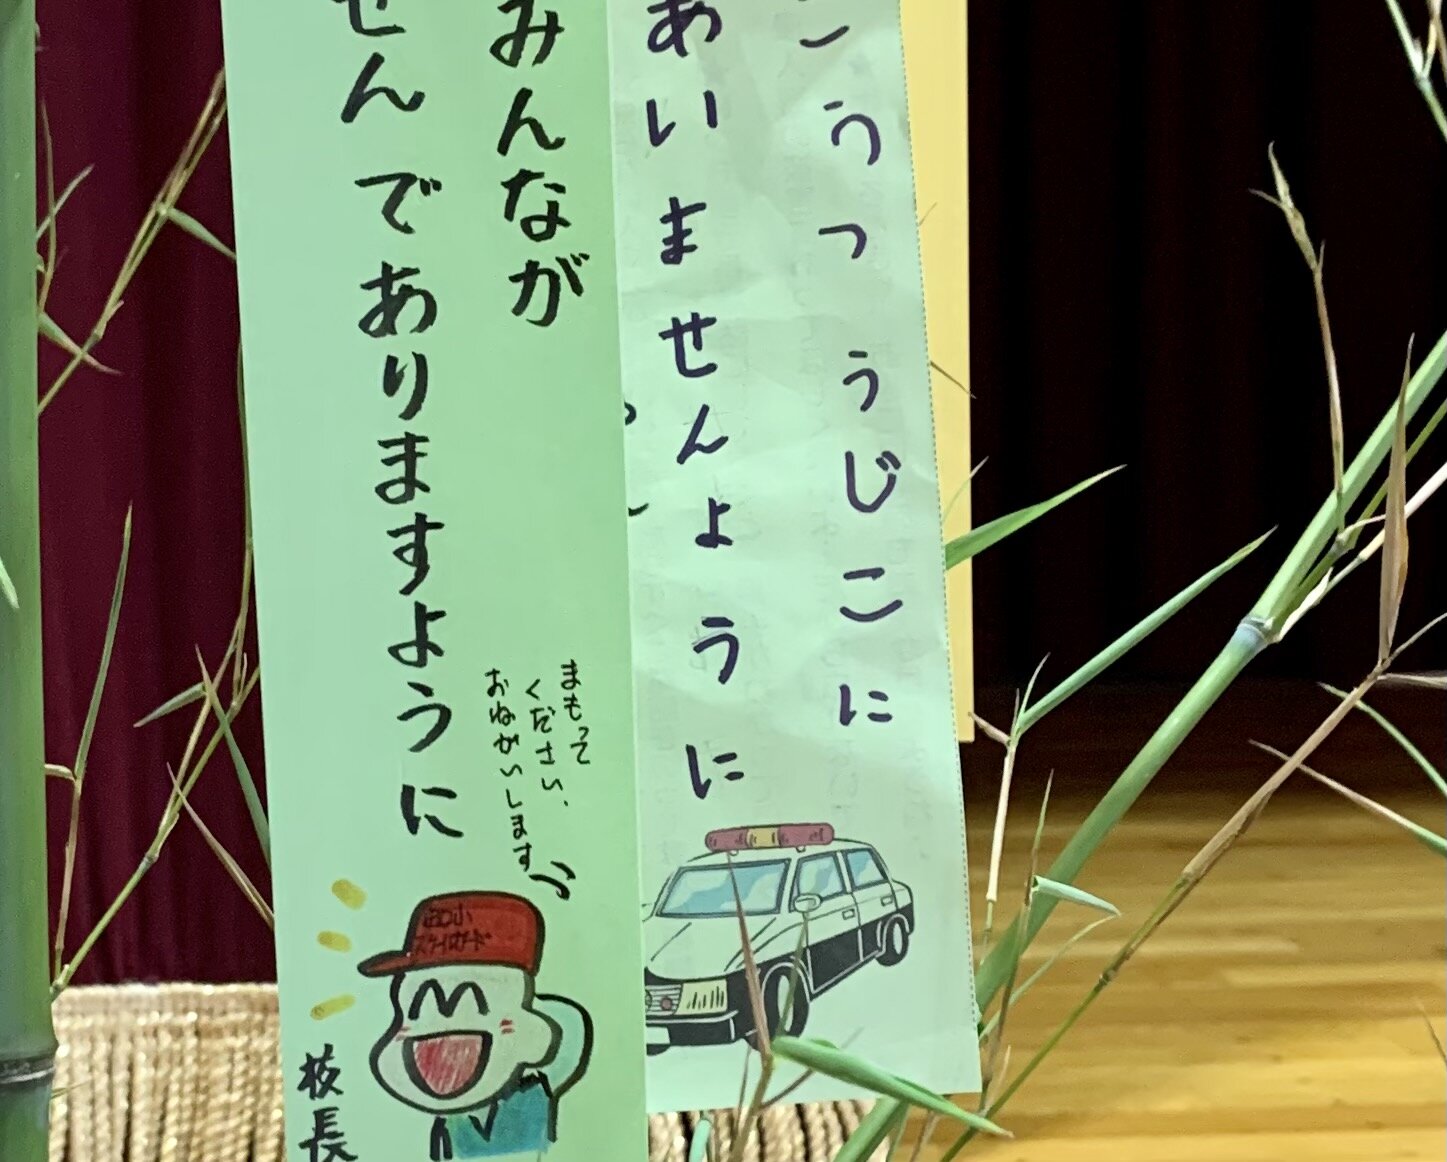 こうつうじこに
あいませんよーうに
みんなが
せんでありますように
まもって
ください、
おねがいします
スクールガード
校長